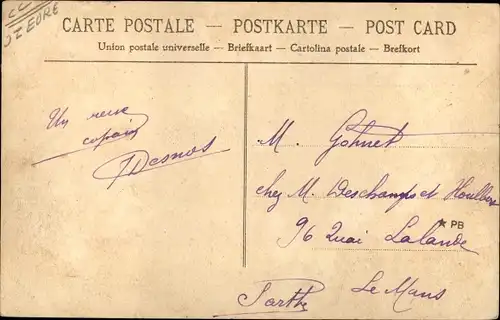 CC
27 EURE
CARTE POSTALE — POSTKARTE — POST CARD
Union postale universelle — Briefkaart — Cartolina postale — Brefkort
Un
copain
Desnos
M. Gohnet
chez M. Deschamps et Houlbert
★ PB
96 Quai Lalande
Le Mans
Sarthe